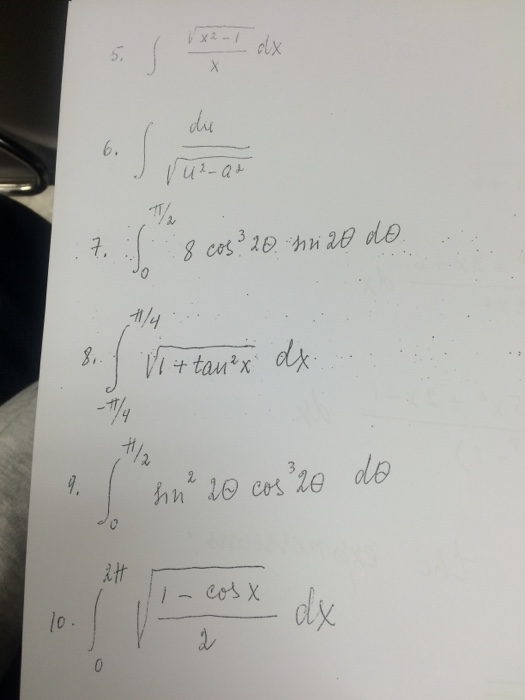 5. ∫ √(x2 - 1) / x dx
6. ∫ du / √(u² - a²)
7. ∫₀^(π/2) 8 cos³ 2θ sin 2θ dθ
8. ∫_(-π/4)^(π/4) √(1 + tan²x) dx.
9. ∫₀^(π/2) sin² 2θ cos³ 2θ dθ
10. ∫₀^(2π) √((1 - cos x) / 2) dx